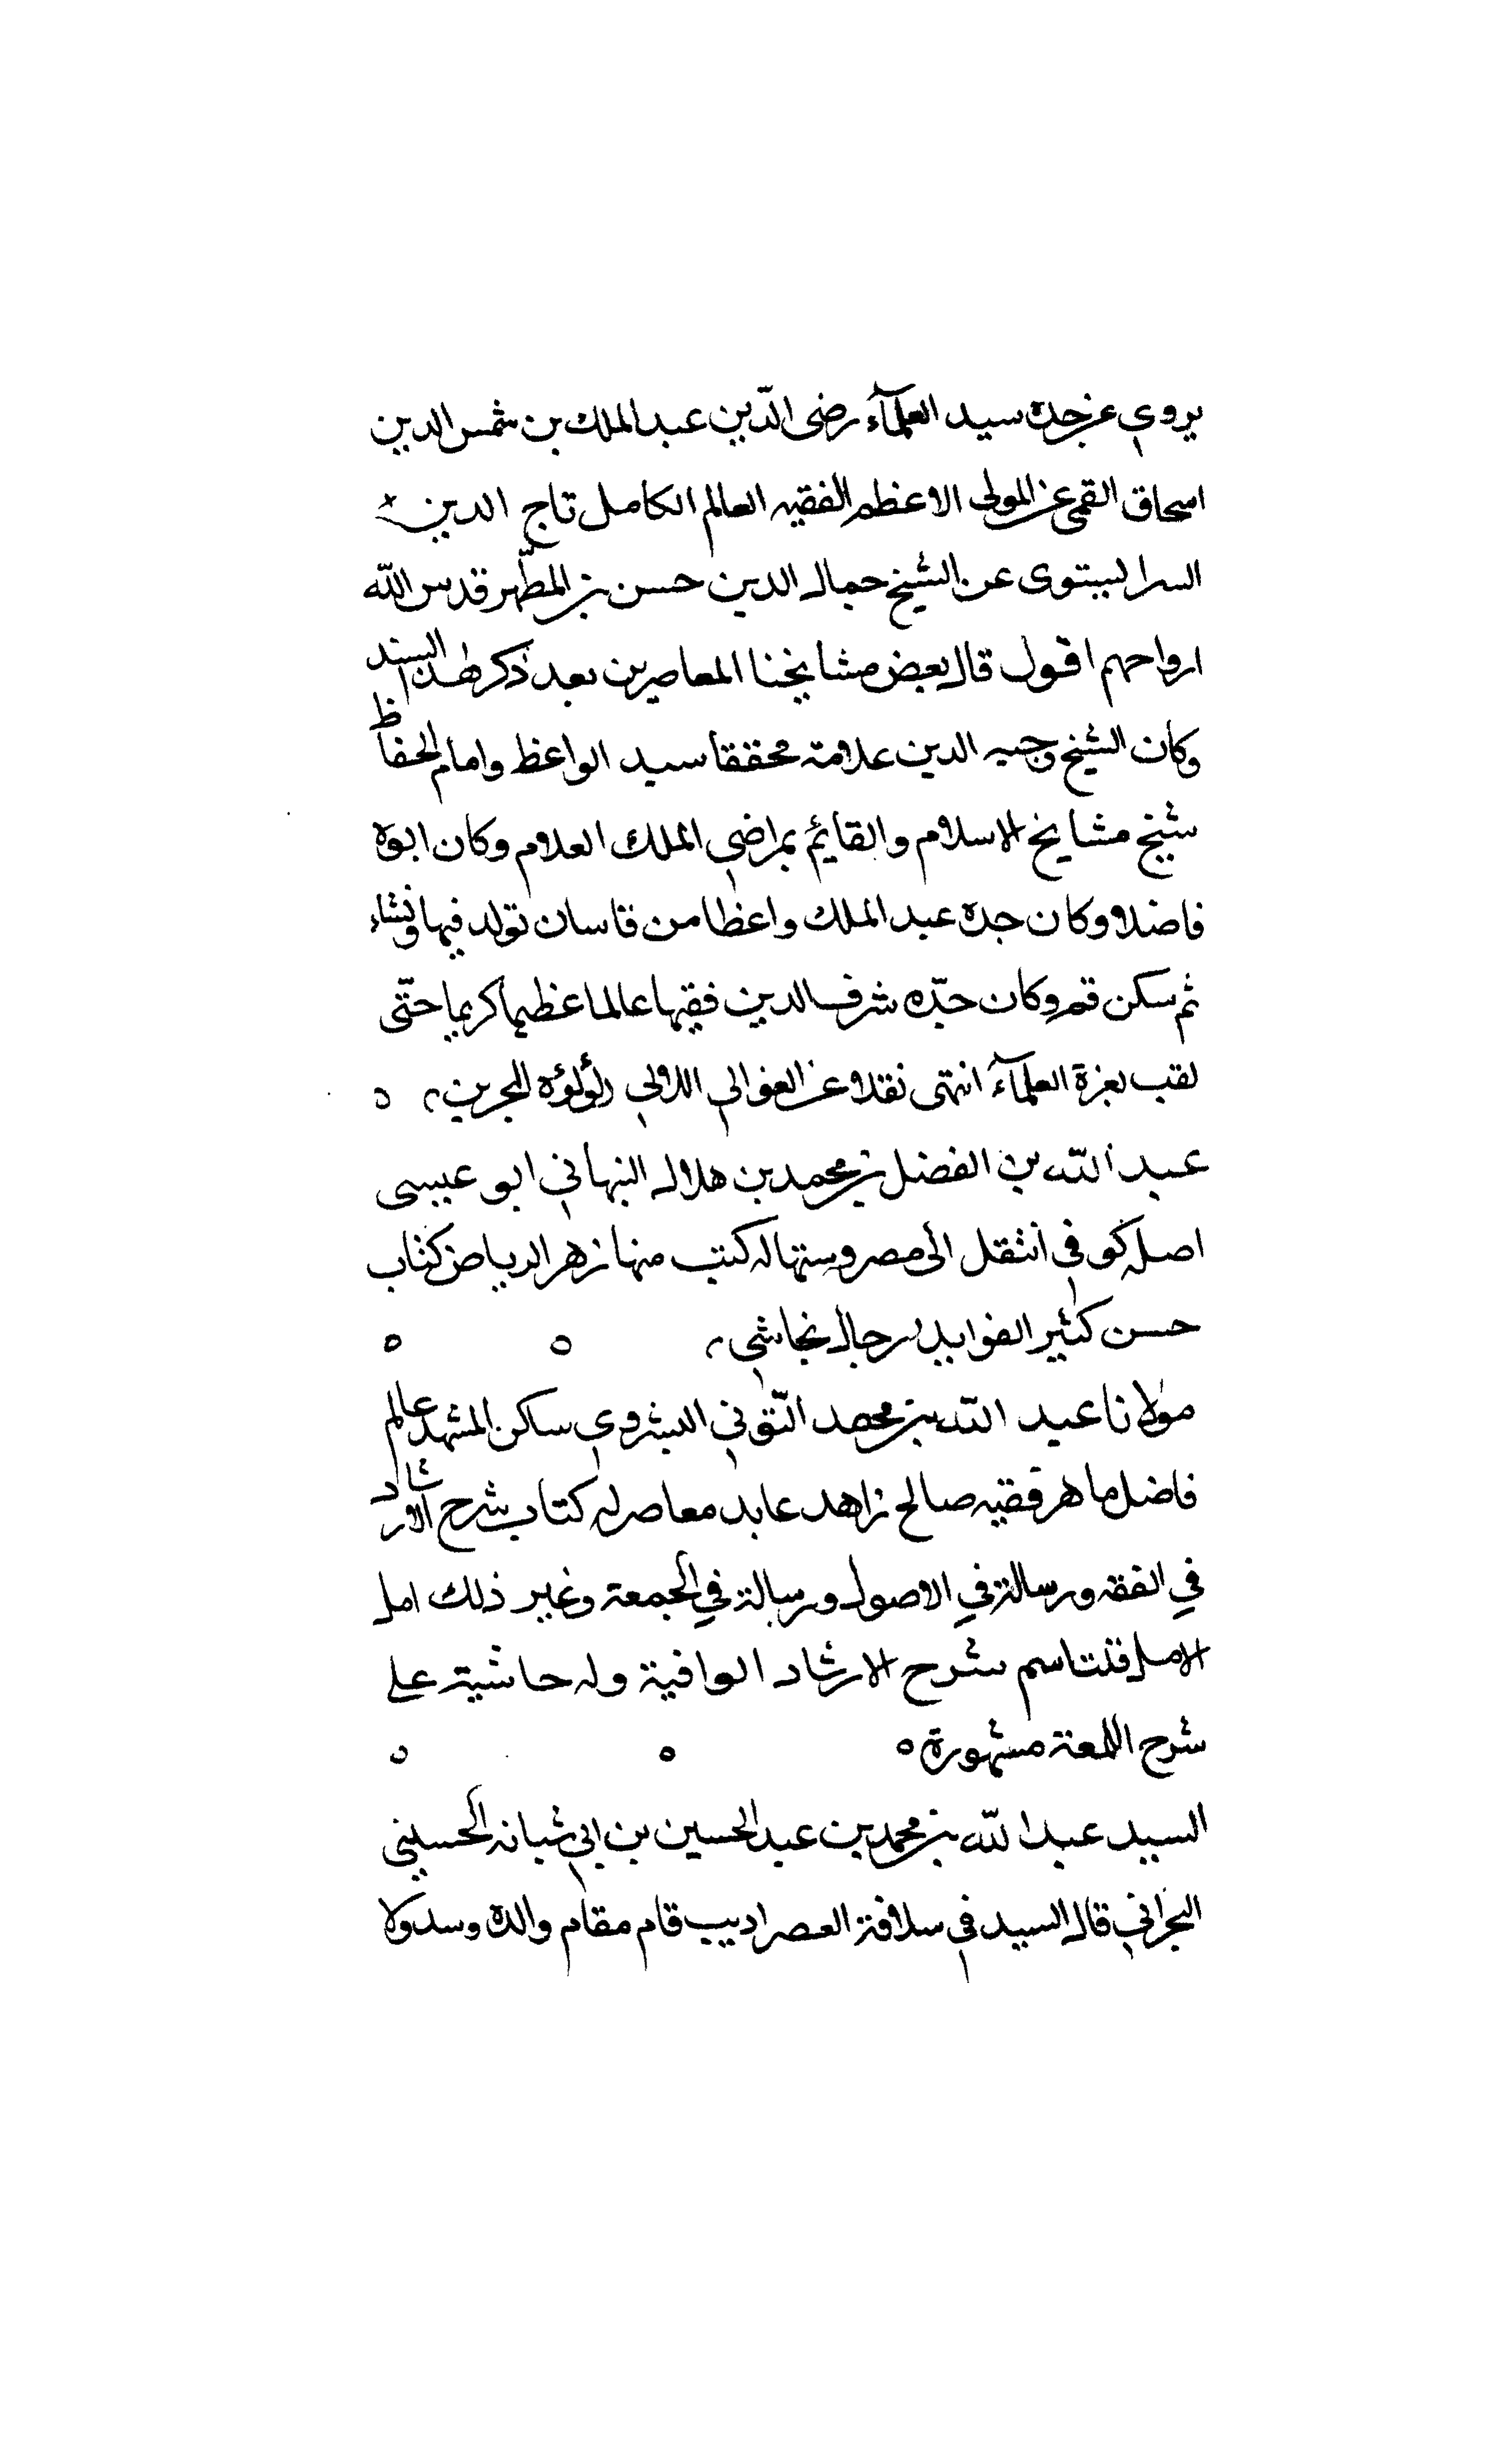 يروي عن جده سيد العلمآء رضى الدّين عبد الملك بن شمس الدين
اسحاق القمي عن المولى الاعظم الفقيه العالم الكامل تاج الدين
السرابستوى عن الشيخ جمال الدين حسن بن المطّهر قدس الله
ارواحهم اقول قال بعض مشايخنا المعاصرين بعد ذكر هذا السند
وكان الشيخ وجيه الدين علامة محققا سيد الواعظ وامام الحفاظ
شيخ مشايخ الاسلام والقائم بمراضي الملك العلام وكان ابوه
فاضلا وكان جده عبد الملك واعظا من قاسان تولد فيها ونشاء
ثم سكن قم وكان جدّه شرف الدين فقيها عالما عظيما كريما حتّى
لقب بعزة العلمآء انتهى نقلا عن الغوالي اللالي لؤلؤة البحرين
عبد الله بن الفضل بن محمد بن هلال النبهاني ابو عيسى
اصله كوفى انتقل الى مصر وسكنها له كتب منها زهر الرياض كتاب
حسن كثير الفوايد رجال نجاشي
مولانا عبد الله بن محمد التّوني البشروي ساكن المشهد عالم
فاضل ماهر فقيه صالح زاهد عابد معاصر له كتاب شرح الارشاد
في الفقه ورسالة في الاصول ورسالة في الجمعة وغير ذلك امل
الامل قلت اسم شرح الارشاد الوافية وله حاشية على
شرح اللمعة مشهورة
السيد عبد الله بن محمد بن عبد الحسين بن ابي شبانه الحسيني
البحراني قال السيد في سلافة العصر اديب قام مقام والده وسد ولا